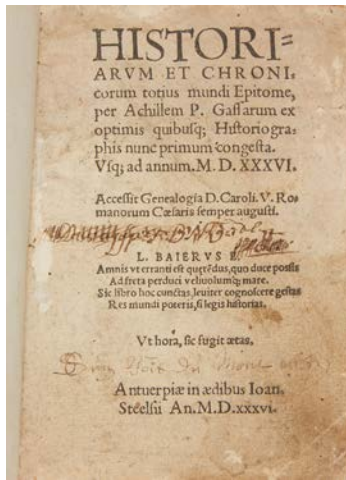 HISTORI=
ARVM ET CHRONI.
corum totius mundi Epitome,
per Achillem P. Gassarum ex
optimis quibusq; Historiogra-
phis nunc primum congesta.
Vsq; ad annum. M. D. XXXVI.
Accessit Genealogia D. Caroli. V. Ro-
manorum Cæsaris semper augusti.
L. BAIERVS
Amnis vt erranti est quærẽdus, quo duce possis
Ad freta perduci veliuolumq; mare.
Sic libro hoc cunctas, leuiter cognoscere gestas
Res mundi poteris, si legis historias.
Vt hora, sic fugit ætas.
Antuerpiæ in ædibus Ioan.
Steelsii An. M. D. xxxvi.